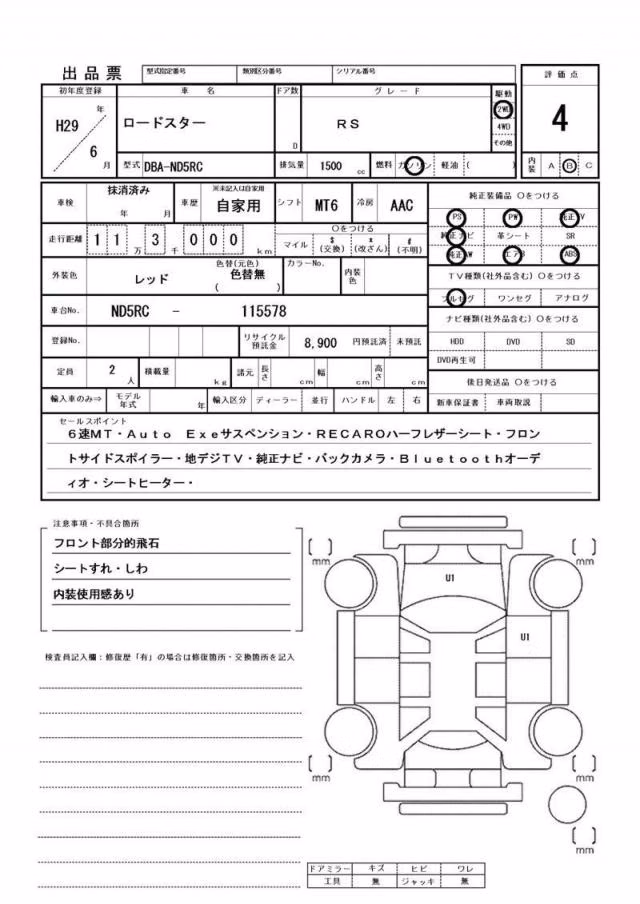 出品票 型式指定番号 類別区分番号 シリアル番号 評価点
初年度登録 車名 ドア数 グレード 駆動
H29 年 6 月 ロードスター D RS 2WD 4WD その他 4
型式 DBA-ND5RC 排気量 1500 cc 燃料 ガソリン 軽油 ( ) 内装 A B C
車検 抹消済み 年 月 車歴 ※未記入は自家用 自家用 シフト MT6 冷房 AAC 純正装備品 〇をつける
PS PW 純正TV
走行距離 1 1 万 3 千 0 0 0 km 〇をつける マイル $ (交換) x (改ざん) # (不明) 純正ナビ 革シート SR
純正AW エアB ABS
外装色 レッド 色替(元色) 色替無 ( ) カラーNo. 内装色 TV種類(社外品含む) 〇をつける
フルセグ ワンセグ アナログ
車台No. ND5RC - 115578 ナビ種類(社外品含む) 〇をつける
登録No. リサイクル預託金 8,900 円預託済 未預託 HDD DVD SD
DVD再生可
定員 2 人 積載量 kg 諸元 長さ cm 幅 cm 高さ cm 後日発送品 〇をつける
輸入車のみ⇒ モデル年式 年 輸入区分 ディーラー 並行 ハンドル 左 右 新車保証書 車両取説
セールスポイント
6速MT・Auto Exeサスペンション・RECAROハーフレザーシート・フロン
トサイドスポイラー・地デジTV・純正ナビ・バックカメラ・Bluetoothオーデ
ィオ・シートヒーター・
注意事項・不具合箇所
フロント部分的飛石
シートすれ・しわ
内装使用感あり
検査員記入欄:修復歴「有」の場合は修復箇所・交換箇所を記入
[ ] mm [ ] mm
U1
U1
[ ] mm [ ] mm
[ ] mm
ドアミラー キズ ヒビ ワレ
工具 無 ジャッキ 無